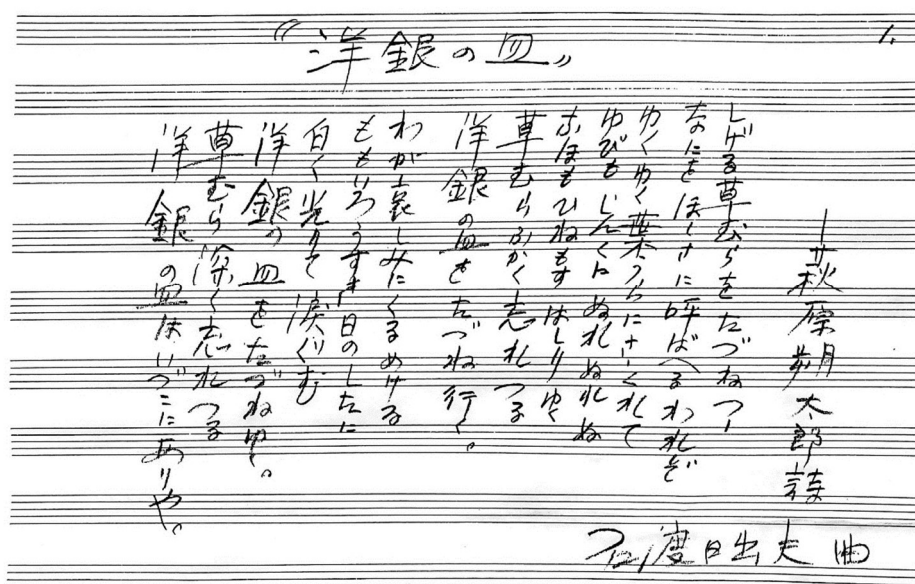 "洋銀の皿"
1.
―萩原朔太郎詩
石渡日出夫 曲
しげる草むらをたづねつゝ
なにをほしさに呼ばへるわれぞ
ゆくゆく葉うらにさゝくれて
ゆびも しんくに ぬれぬれぬ
なほもひねもす はしりゆく
草むらふかく忘れつる
洋銀の皿をたづね行く。
わが哀しみにくるめける
ももいろうすき日のしたに
白く光りて 涙ぐむ
洋銀の皿をたづねゆく。
草むら 深く忘れつる
洋銀の皿はいづこにありや。